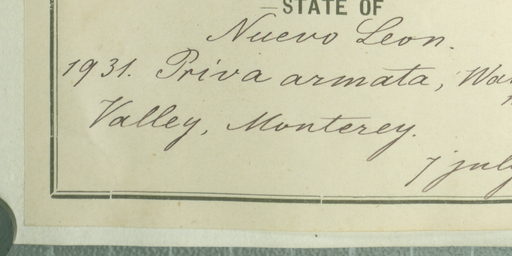 STATE OF
Nuevo Leon.
1931. Priva armata, Wa
Valley, Monterey.
7 july